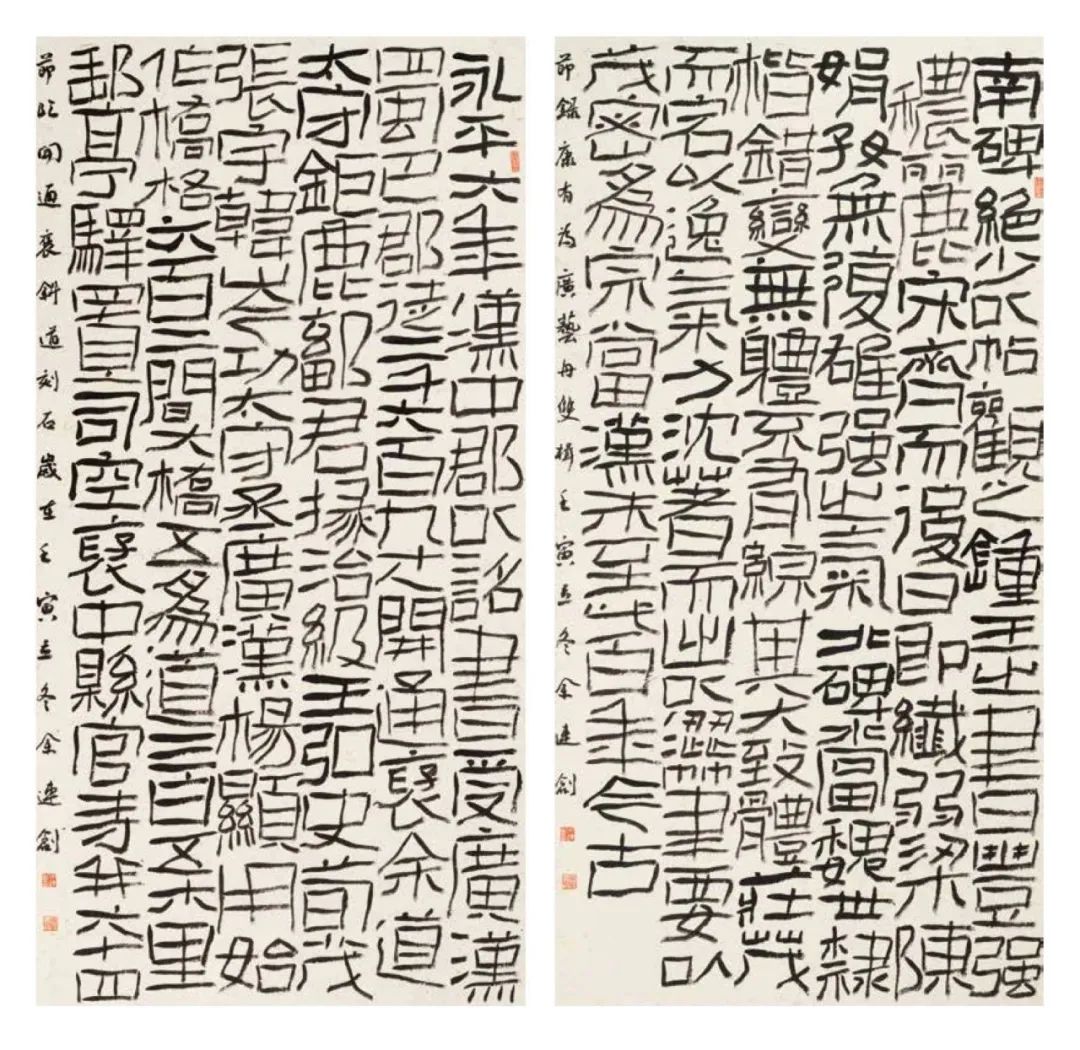 南碑絕少以帖觀之鍾王之書豐强
穠麗宋齊而後日即纖弱梁陳
娟好無復雄强之氣北碑當魏世隸
楷錯變無體不有綜其大致體莊茂
而宕以逸氣力沈著而出以澀筆要以
茂密為宗當漢末至此百年今古
節錄康有為廣藝舟雙楫壬寅立冬余連創
永平六年漢中郡以詔書受廣漢
蜀巴郡徒二千六百九十人開通褒余道
太守鉅鹿鄐君掾治級王弘史荀茂
張宇韓岑功太守丞廣漢楊顯用始
作橋格六百二間大橋五為道二百五十八里
郵亭驛置司空褒中縣官寺并六十四
節臨開通褒斜道刻石歲在壬寅立冬余連創